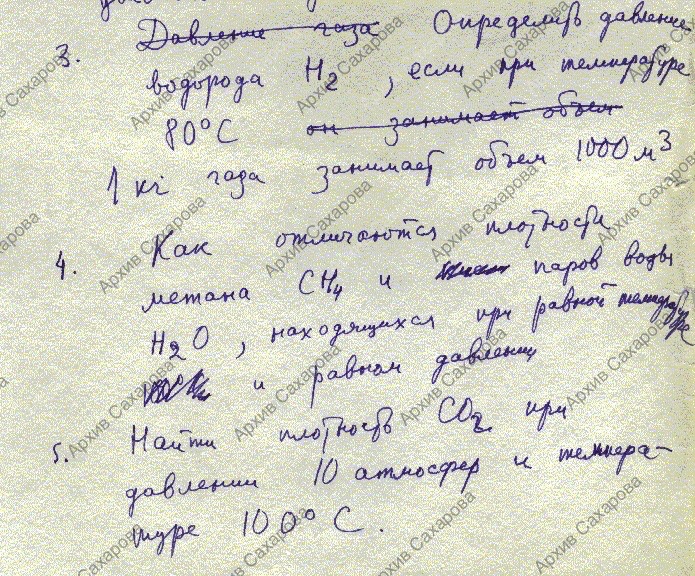 3. Давление газа Определить давление
водорода H2, если при температуре
80°C он занимает объем
1 кг газа занимает объем 1000 м3
4. Как отличаются плотности
метана CH4 и паров воды
H2O, находящихся при равной температуре
и равном давлении
5. Найти плотность CO2 при
давлении 10 атмосфер и темпера-
туре 100°C.
Архив Сахарова